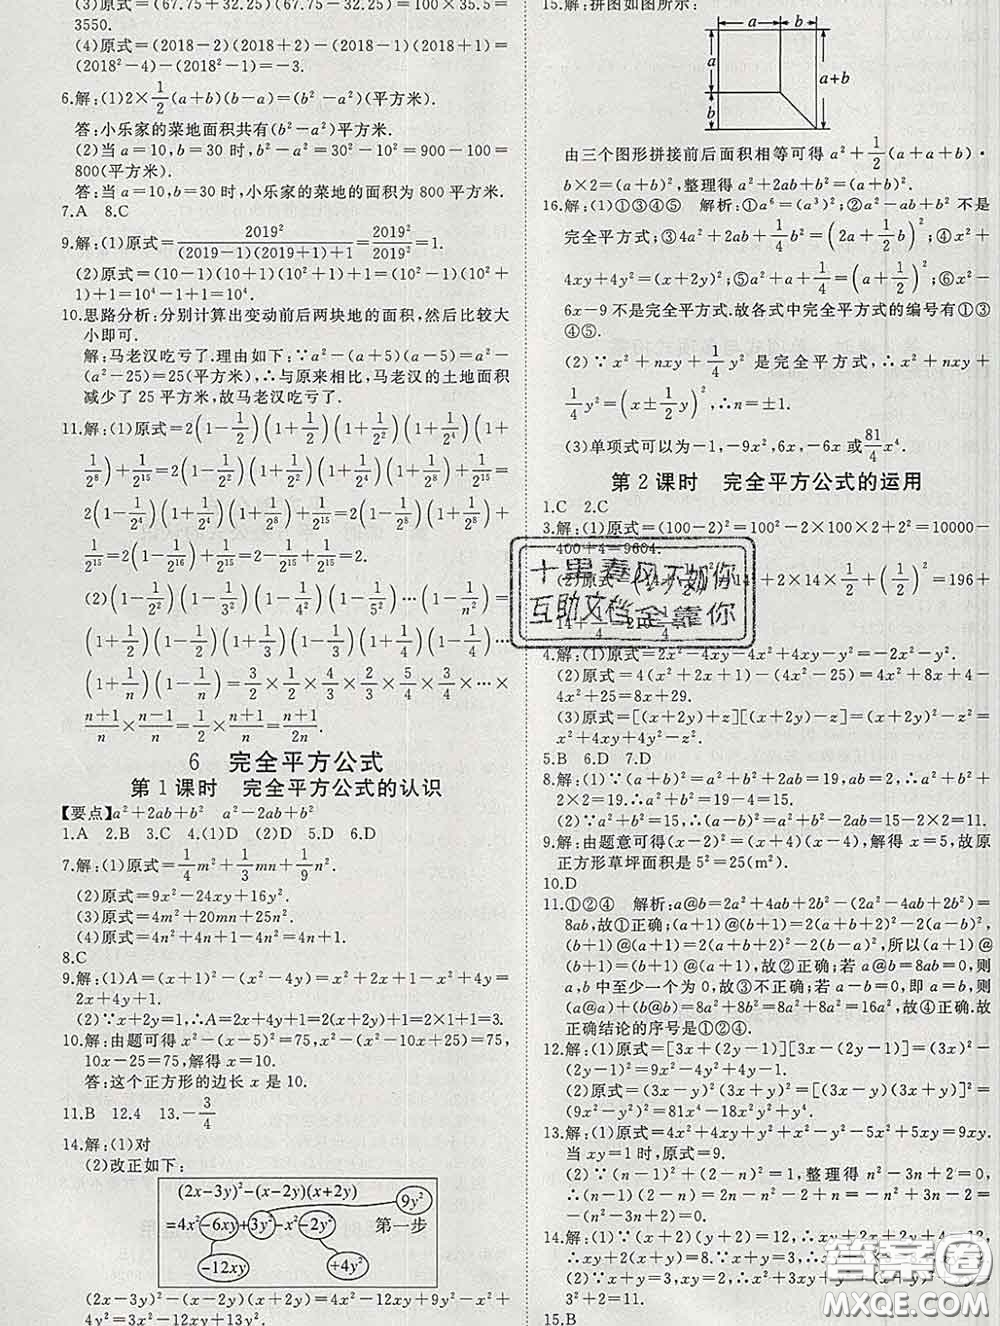 (3)原式=(67.75+32.25)(67.75-32.25)=100×35.5=
3550.
(4)原式=(2018-2)(2018+2)-(2018-1)(2018+1)=
(2018²-4)-(2018²-1)=-3.
6.解:(1)2×1/2(a+b)(b-a)=(b²-a²)(平方米).
答:小乐家的菜地面积共有(b²-a²)平方米.
(2)当a=10,b=30时,b²-a²=30²-10²=900-100=
800(平方米).
答:当a=10,b=30时,小乐家的菜地的面积为800平方米.
7.A 8.C
9.解:(1)原式=2019²/((2019-1)(2019+1)+1)=2019²/2019²=1.
(2)原式=(10-1)(10+1)(10²+1)+1=(10²-1)(10²+
1)+1=10⁴-1+1=10⁴.
10.思路分析:分别计算出变动前后两块地的面积,然后比较大
小即可.
解:马老汉吃亏了.理由如下:∵a²-(a+5)(a-5)=a²-
(a²-25)=25(平方米),∴与原来相比,马老汉的土地面积
减少了25平方米,故马老汉吃亏了.
11.解:(1)原式=2(1-1/2)(1+1/2)(1+1/2²)(1+1/2⁴)(1+
1/2⁸)+1/2¹⁵=2(1-1/2²)(1+1/2²)(1+1/2⁴)(1+1/2⁸)+1/2¹⁵=
2(1-1/2⁴)(1+1/2⁴)(1+1/2⁸)+1/2¹⁵=2(1-1/2⁸)(1+1/2⁸)+
1/2¹⁵=2(1-1/2¹⁶)+1/2¹⁵=2-1/2¹⁵+1/2¹⁵=2.
(2)(1-1/2²)(1-1/3²)(1-1/4²)(1-1/5²)···(1-1/n²)=
(1+1/2)(1-1/2)(1+1/3)(1-1/3)(1+1/4)(1-1/4)···
(1+1/n)(1-1/n)=3/2×1/2×4/3×2/3×5/4×3/4×···×
(n+1)/n×(n-1)/n=1/2×(n+1)/n=(n+1)/2n.
6 完全平方公式
第1课时 完全平方公式的认识
【要点】a²+2ab+b² a²-2ab+b²
1.A 2.B 3.C 4.(1)D (2)D 5.D 6.D
7.解:(1)原式=1/4m²+1/3mn+1/9n².
(2)原式=9x²-24xy+16y².
(3)原式=4m²+20mn+25n².
(4)原式=4n²+4n+1-4n²=4n+1.
8.C
9.解:(1)A=(x+1)²-(x²-4y)=x²+2x+1-x²+4y=
2x+4y+1.
(2)∵x+2y=1,∴A=2x+4y+1=2(x+2y)+1=2×1+1=3.
10.解:由题可得x²-(x-5)²=75,x²-(x²-10x+25)=75,
10x-25=75,解得x=10.
答:这个正方形的边长x是10.
11.B 12.4 13.-3/4
14.解:(1)对
(2)改正如下:
(2x-3y)²-(x-2y)(x+2y) 9y²
=4x²-6xy+3y²-x²-2y² 第一步
-12xy +4y²
(2x-3y)²-(x-2y)(x+2y)=4x²-12xy+9y²-x²+
4y²=3x²-12xy+13y².
15.解:拼图如图所示:
a b
a
a+b
b
由三个图形拼接前后面积相等可得a²+1/2(a+a+b)·
b×2=(a+b)²,整理得a²+2ab+b²=(a+b)².
16.解:(1)①③④⑤ 解析:①a⁶=(a³)²;②a²-ab+b²不是
完全平方式;③4a²+2ab+1/4b²=(2a+1/2b)²;④x²+
4xy+4y²=(x+2y)²;⑤a²+a+1/4=(a+1/2)²;⑥x²-
6x-9不是完全平方式.故各式中完全平方式的编号有①③
④⑤.
(2)∵x²+nxy+1/4y²是完全平方式,∴x²+nxy+
1/4y²=(x±1/2y)²,∴n=±1.
(3)单项式可以为-1,-9x²,6x,-6x或81/4x⁴.
第2课时 完全平方公式的运用
1.C 2.C
3.解:(1)原式=(100-2)²=100²-2×100×2+2²=10000-
400+4=9604.
(2)原式=(14+1/2)²=14²+2×14×1/2+(1/2)²=196+
十里春风不如你
互助文档全靠你
4.解:(1)原式=2x²-4xy-4x²+4xy-y²=-2x²-y².
(2)原式=4(x²+2x+1)-(4x²-25)=4x²+8x+4-
4x²+25=8x+29.
(3)原式=[(x+2y)+z][(x+2y)-z]=(x+2y)²-z²=
x²+4xy+4y²-z².
5.B 6.D 7.D
8.解:(1)a²+b²=(a+b)²-2ab=19,∴a²+b²+2ab=19+2
×2=19.∴a²+b²=19-4=15.
(2)∵a²+b²=15,∴(a-b)²=a²+b²-2ab=15-2×2=11.
9.解:由题意可得(x-2)²=(x+2)(x-2)-8,解得x=5,故
原正方形草坪面积是5²=25(m²).
10.D
11.①②④ 解析:a@b=2a²+4ab+2b²-(2a²-4ab+2b²)=
8ab,故①正确;(a+1)@(b+1)=2(a+b+2)²-2(a-b)²,
(b+1)@(a+1)=2(a+b+2)²-2(b-a)²,所以(a+1)@
(b+1)=(b+1)@(a+1),故②正确;若a@b=8ab=0,则
a,b中至少一个为0,故③不正确;若a-b=0,即a=b,则
(a@a)+(b@b)=8a²+8b²=8a²+8a²=16a²,故④正确.故
正确结论的序号是①②④.
12.解:(1)原式=[3x+(2y-1)][3x-(2y-1)]=(3x)²-
(2y-1)²=9x²-4y²+4y-1.
(2)原式=(3x-y)²(3x+y)²=[(3x-y)(3x+y)]²=
(9x²-y²)²=81x⁴-18x²y²+y⁴.
13.解:(1)原式=4x²+4xy+y²+x²-y²-5x²+5xy=9xy.
当xy=1时,原式=9.
(2)∵(n-1)²+(2-n)²=1,整理得n²-3n+2=0,
∴(n-1)(2-n)=2n-2-n²+n=-n²+3n-2=
-(n²-3n+2)=0.
14.解:(1)∵(x+2)(y+2)=12,∴xy+2x+2y+4=12,
∴xy+2(x+y)=8.∵x+y=3,∴xy=2.
(2)∵x+y=3,xy=2,∴x²+3xy+y²=(x+y)²+xy=
3²+2=11.
15.B
答案圈
MXQE.COM